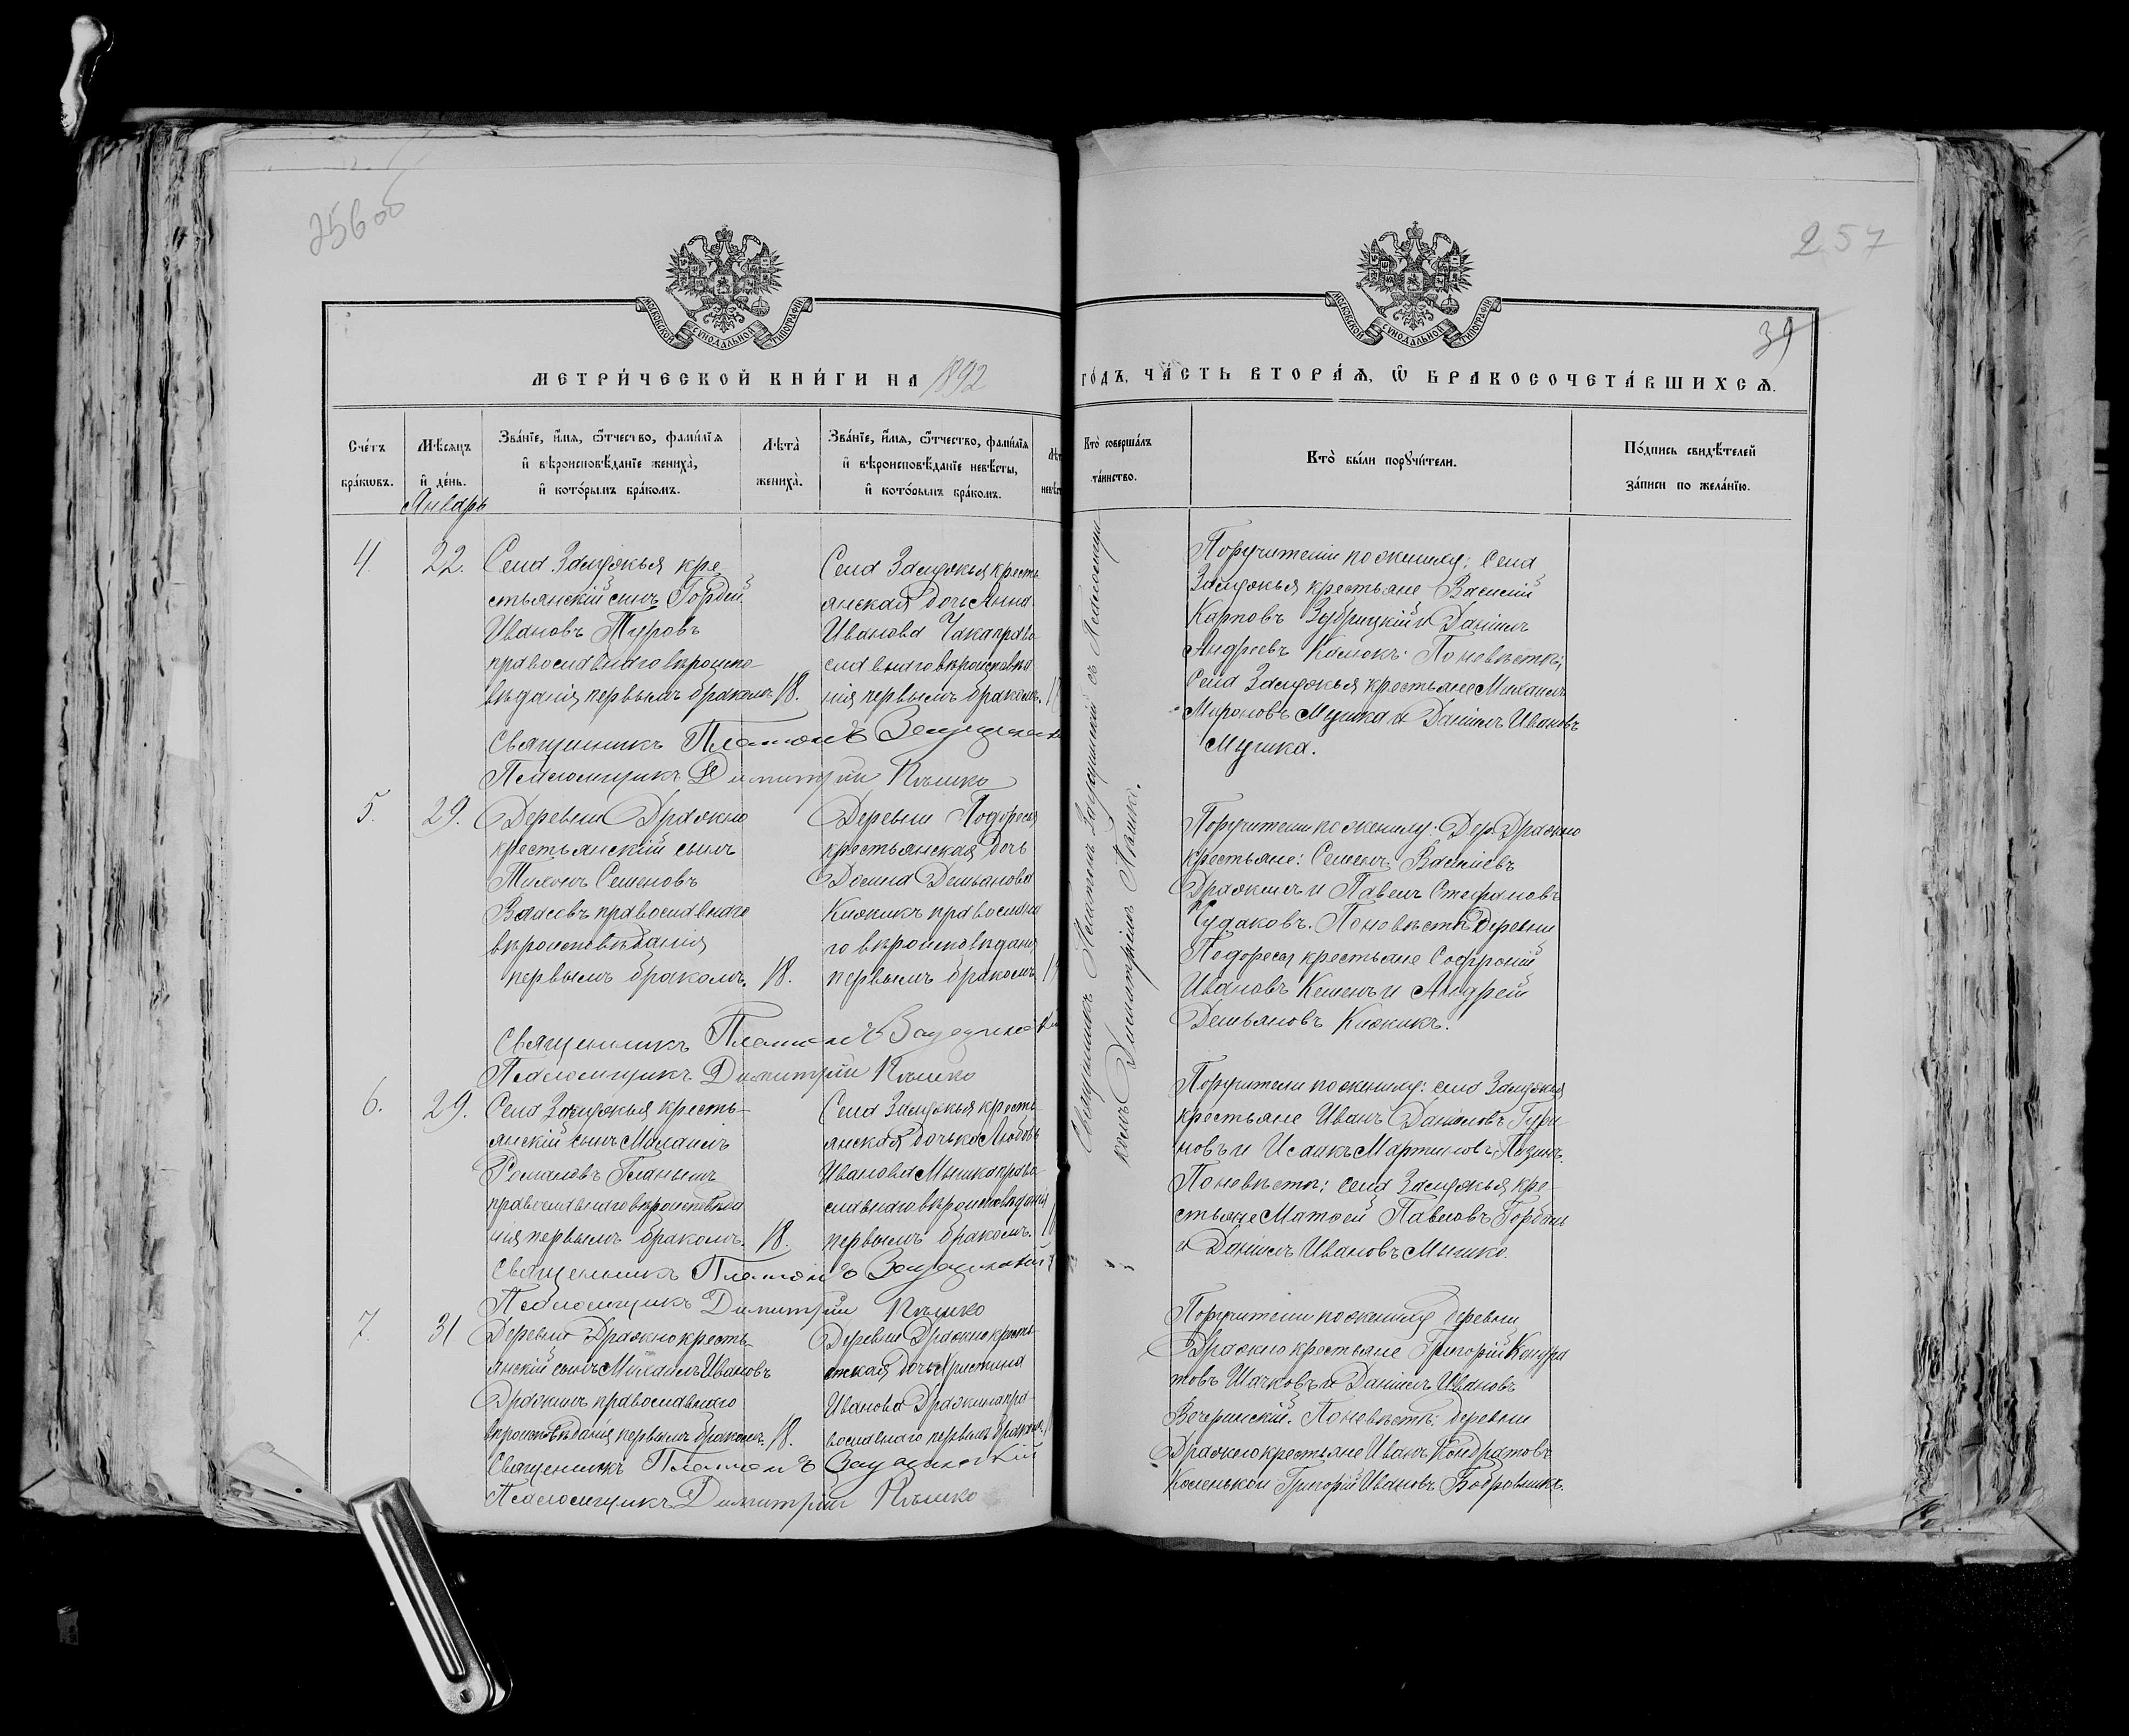 256 об
257
39
МОСКОВСКОЙ СѴНОДАЛЬНОЙ ТИПОГРАФІИ
МОСКОВСКОЙ СѴНОДАЛЬНОЙ ТИПОГРАФІИ
МЕТРИ́ЧЕСКОЙ КНИ́ГИ НА 1892
ГО́ДЪ, ЧА́СТЬ ВТОРА́Ѧ, Ѡ҆ БРАКОСОЧЕТА́ВШИХСѦ.
Сче́тъ
бра́кѡвъ.
Мѣ́сяцъ
и҆ де́нь.
Январь
Зва́нїе, и҆́мѧ, ѻ҆́тчество, фами́лїѧ
и҆ вѣроисповѣ́данїе жениха̀,
и҆ кото́рымъ бра́комъ.
Лѣ́та
жениха̀.
Зва́нїе, и҆́мѧ, ѻ҆́тчество, фами́лїѧ
и҆ вѣроисповѣ́данїе невѣ́сты,
и҆ кото́рымъ бра́комъ.
Кто̀ соверша́лъ
та́инство.
Кто̀ бы́ли порꙋчи́тели.
По́дпись свидѣ́телей
за́писи по жела́нїю.
4
22.
Села Замужья кре
стьянскій сынъ Гордій
Ивановъ Туровъ
православнаго вѣроиспо-
вѣданія первымъ бракомъ.
18.
Села Замужья кресть
янская дочь Анна
Иванова Чака право
славнаго вѣроисповѣда
нія первымъ бракомъ.
Поручители по жениху: села
Замужья крестьяне Василій
Карповъ Зубрицкій и Даніилъ
Андреевъ Калюкъ. По невѣстѣ:
села Замужья крестьяне Михаилъ
Мироновъ Мушка и Даніилъ Ивановъ
Мушка.
Священникъ Платонъ
Псаломщикъ Димитрій Пышко
5.
29.
Деревни Дражно
крестьянскій сынъ
Тихонъ Семеновъ
Власовъ православнаго
вѣроисповѣданія
первымъ бракомъ.
18.
Деревни Подоресья
крестьянская дочь
Домна Демьянова
Книжикъ православна
го вѣроисповѣданія
первымъ бракомъ
Поручители по жениху: Дер. Дражно
крестьяне: Семенъ Василіевъ
Дражинъ и Павелъ Стефановъ
Чудаковъ. По невѣстѣ деревни
Подоресья крестьяне Софроній
Ивановъ и Андрей
Демьяновъ Книжикъ.
Священникъ Платонъ
Псаломщикъ Димитрій Пышко
6.
29.
Села Замужья кресть-
янскій сынъ Михаилъ
Романовъ
православнаго вѣроисповѣда
нія первымъ бракомъ.
18.
Села Замужья кресть
янская дочька Любовь
Иванова Мышка право-
славнаго вѣроисповѣданія
первымъ бракомъ.
Поручители по жениху: села Замужья
крестьяне Иванъ Даниловъ Гури
новъ и Исаакъ Мартиновъ
По невѣстѣ: села Замужья кре-
стьяне Матвей Павловъ Горбань
и Даніилъ Ивановъ Мышко.
Священникъ Платонъ
Псаломщикъ Димитрій Пышко
7.
31
Деревни Дражно кресть-
янскій сынъ Михаилъ Ивановъ
Дражинъ православнаго
вѣроисповѣданія первымъ бракомъ.
18.
Деревни Дражно кресть-
янская дочь Христина
Иванова Дражина пра-
вославнаго первымъ бракомъ.
Поручители по жениху деревни
Дражно крестьяне Григорій Кондра
товъ Шачковъ и Даніилъ Ивановъ
Вечеринскій. По невѣстѣ: деревни
Дражно крестьяне Иванъ Кондратовъ
Григорій Ивановъ
Священникъ Платонъ
Псаломщикъ Димитрій Пышко
Священникъ Платонъ съ Псаломщи
комъ Димитріемъ Пышко.